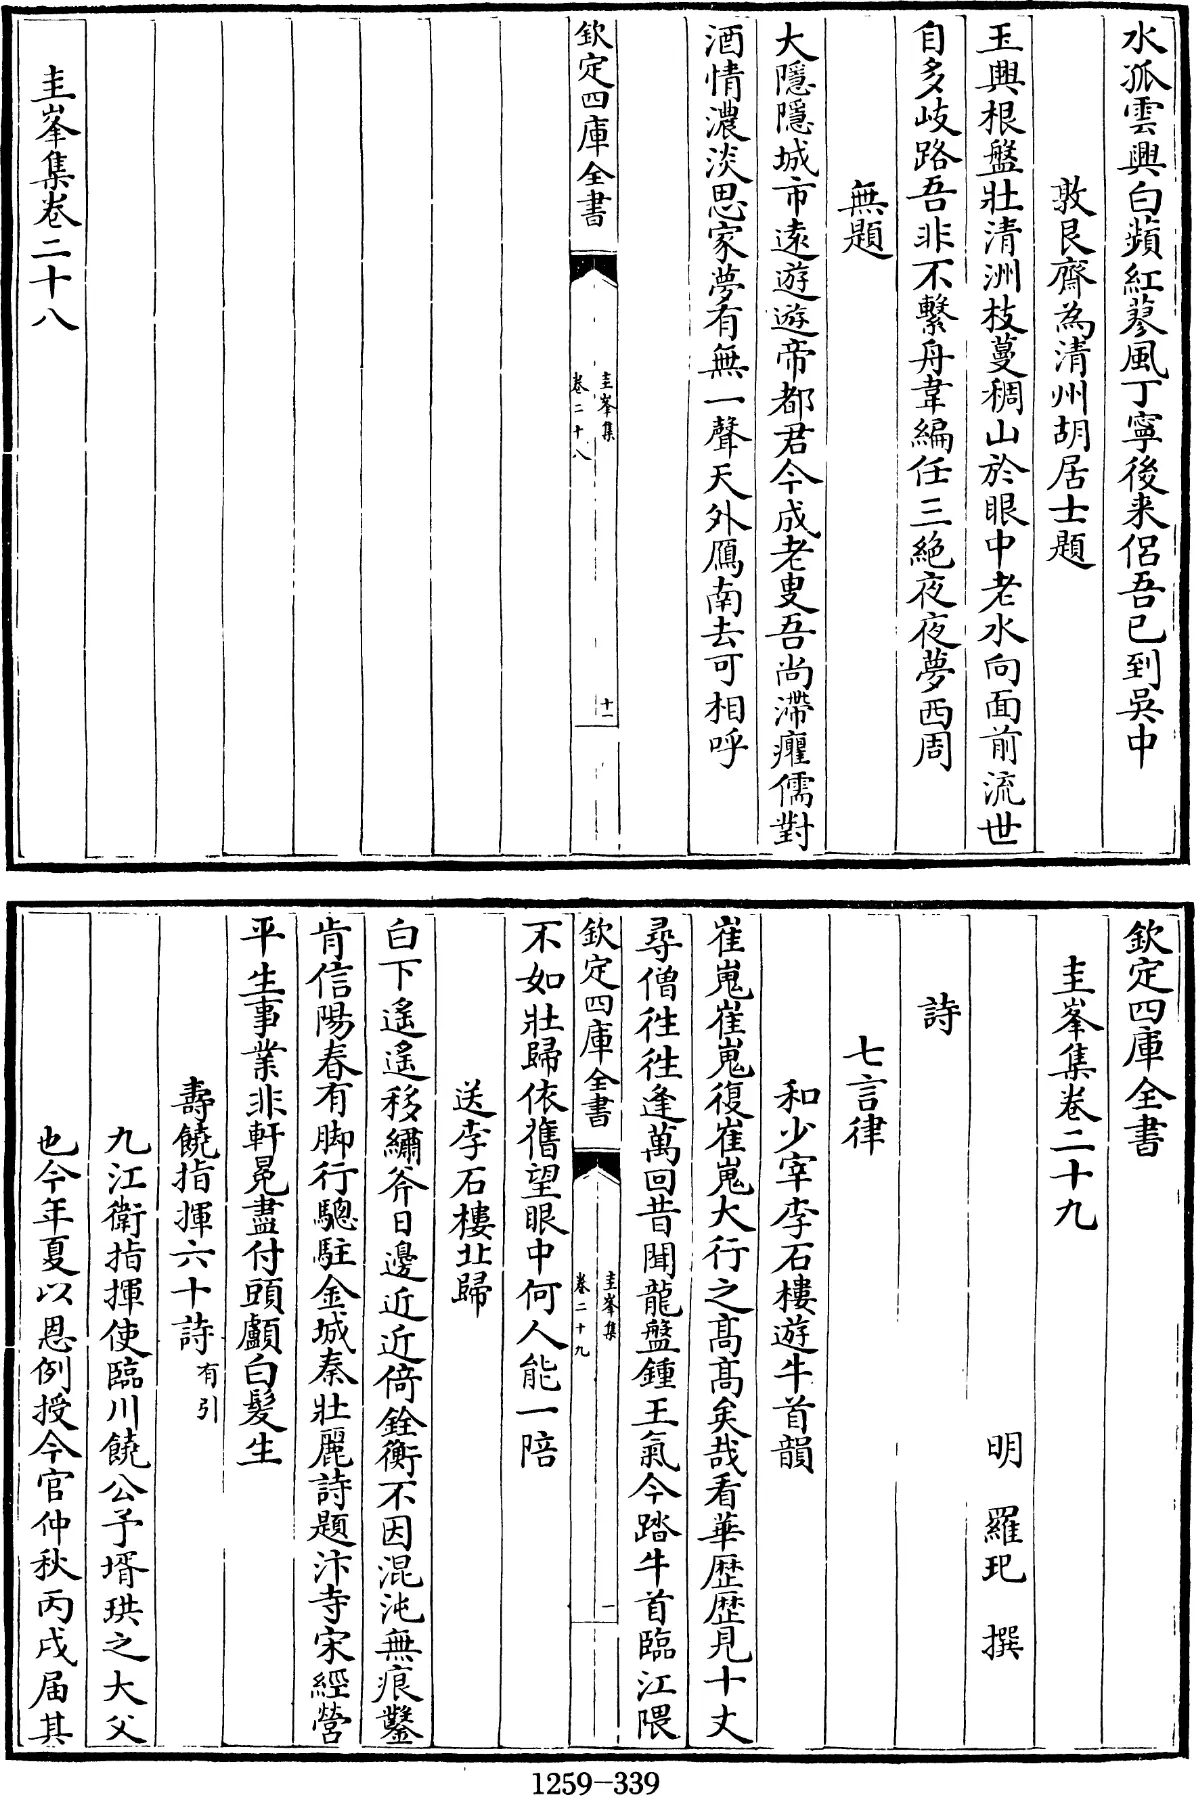 水孤雲興白蘋紅蓼風丁寧後来侣吾已到吳中
敦艮齋為清州胡居士題
玉興根盤壯清洲枝蔓稠山於眼中老水向面前流世
自多岐路吾非不繫舟韋編任三絶夜夜夢西周
無題
大隱隱城市遠遊遊帝都君今成老叟吾尚滯癯儒對
酒情濃淡思家夢有無一聲天外鴈南去可相呼
欽定四庫全書
圭峯集
卷二十八
十一
圭峯集卷二十八
欽定四庫全書
圭峯集卷二十九
明 羅玘 撰
詩
七言律
和少宰李石樓遊牛首韻
崔嵬崔嵬復崔嵬大行之髙髙矣哉看華歴歴見十丈
尋僧徃徃逢萬回昔聞龍盤鍾王氣今踏牛首臨江隈
欽定四庫全書
圭峯集
卷二十九
一
不如壯歸依舊望眼中何人能一陪
送李石樓北歸
白下遙遙移繡斧日邊近近倚銓衡不因混沌無痕鑿
肯信陽春有脚行驄駐金城秦壯麗詩題汴寺宋經營
平生事業非軒冕盡付頭顱白髮生
壽饒指揮六十詩有引
九江衛指揮使臨川饒公予壻珙之大父
也今年夏以恩例授今官仲秋丙戌届其
1259-339